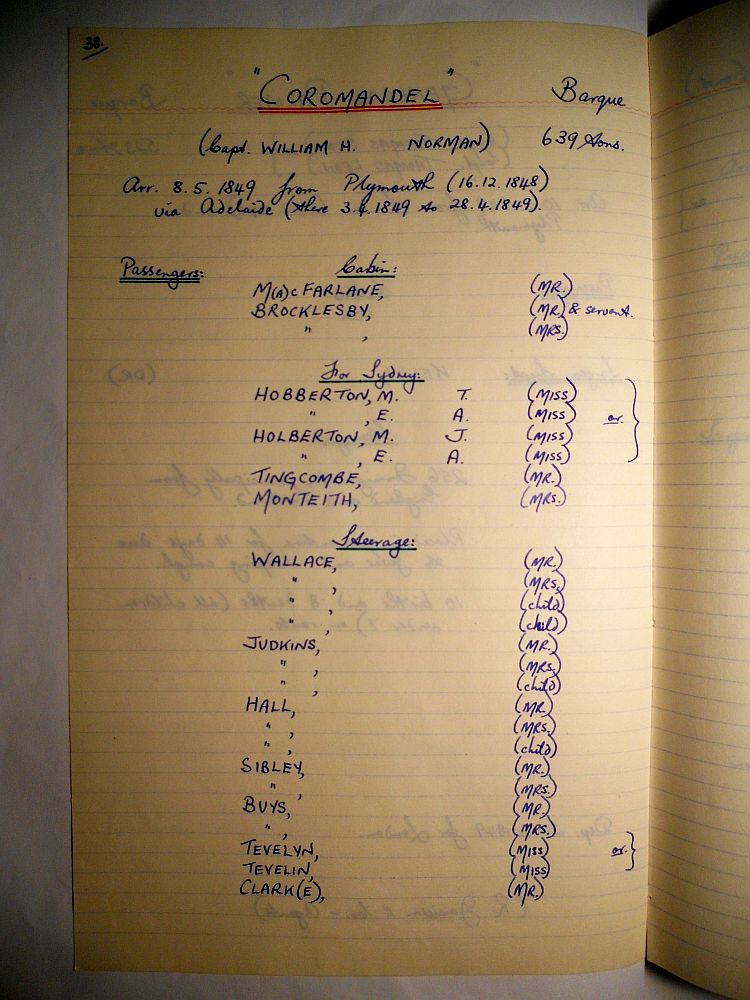 38.
"COROMANDEL" Barque
(Capt. WILLIAM H. NORMAN) 639 tons.
Arr. 8.5.1849 from Plymouth (16.12.1848)
via Adelaide (there 3.4.1849 to 28.4.1849).
Passengers: Cabin:
M(A)cFARLANE, (MR.)
BROCKLESBY, (MR.) & servant.
" , (MRS.)
For Sydney:
HOBBERTON, M. T. (MISS)
" , E. A. (MISS) or.
HOLBERTON, M. J. (MISS)
" , E. A. (MISS)
TINGCOMBE, (MR.)
MONTEITH, (MRS.)
Steerage:
WALLACE, (MR.)
" , (MRS.)
" , (child)
" , (child)
JUDKINS, (MR.)
" , (MRS.)
" , (child)
HALL, (MR.)
" , (MRS.)
" , (child)
SIBLEY, (MR.)
" , (MRS.)
BUYS, (MR.)
" , (MRS.)
TEVELYN, (MISS) or.
TEVELIN, (MISS)
CLARK(E), (MR.)